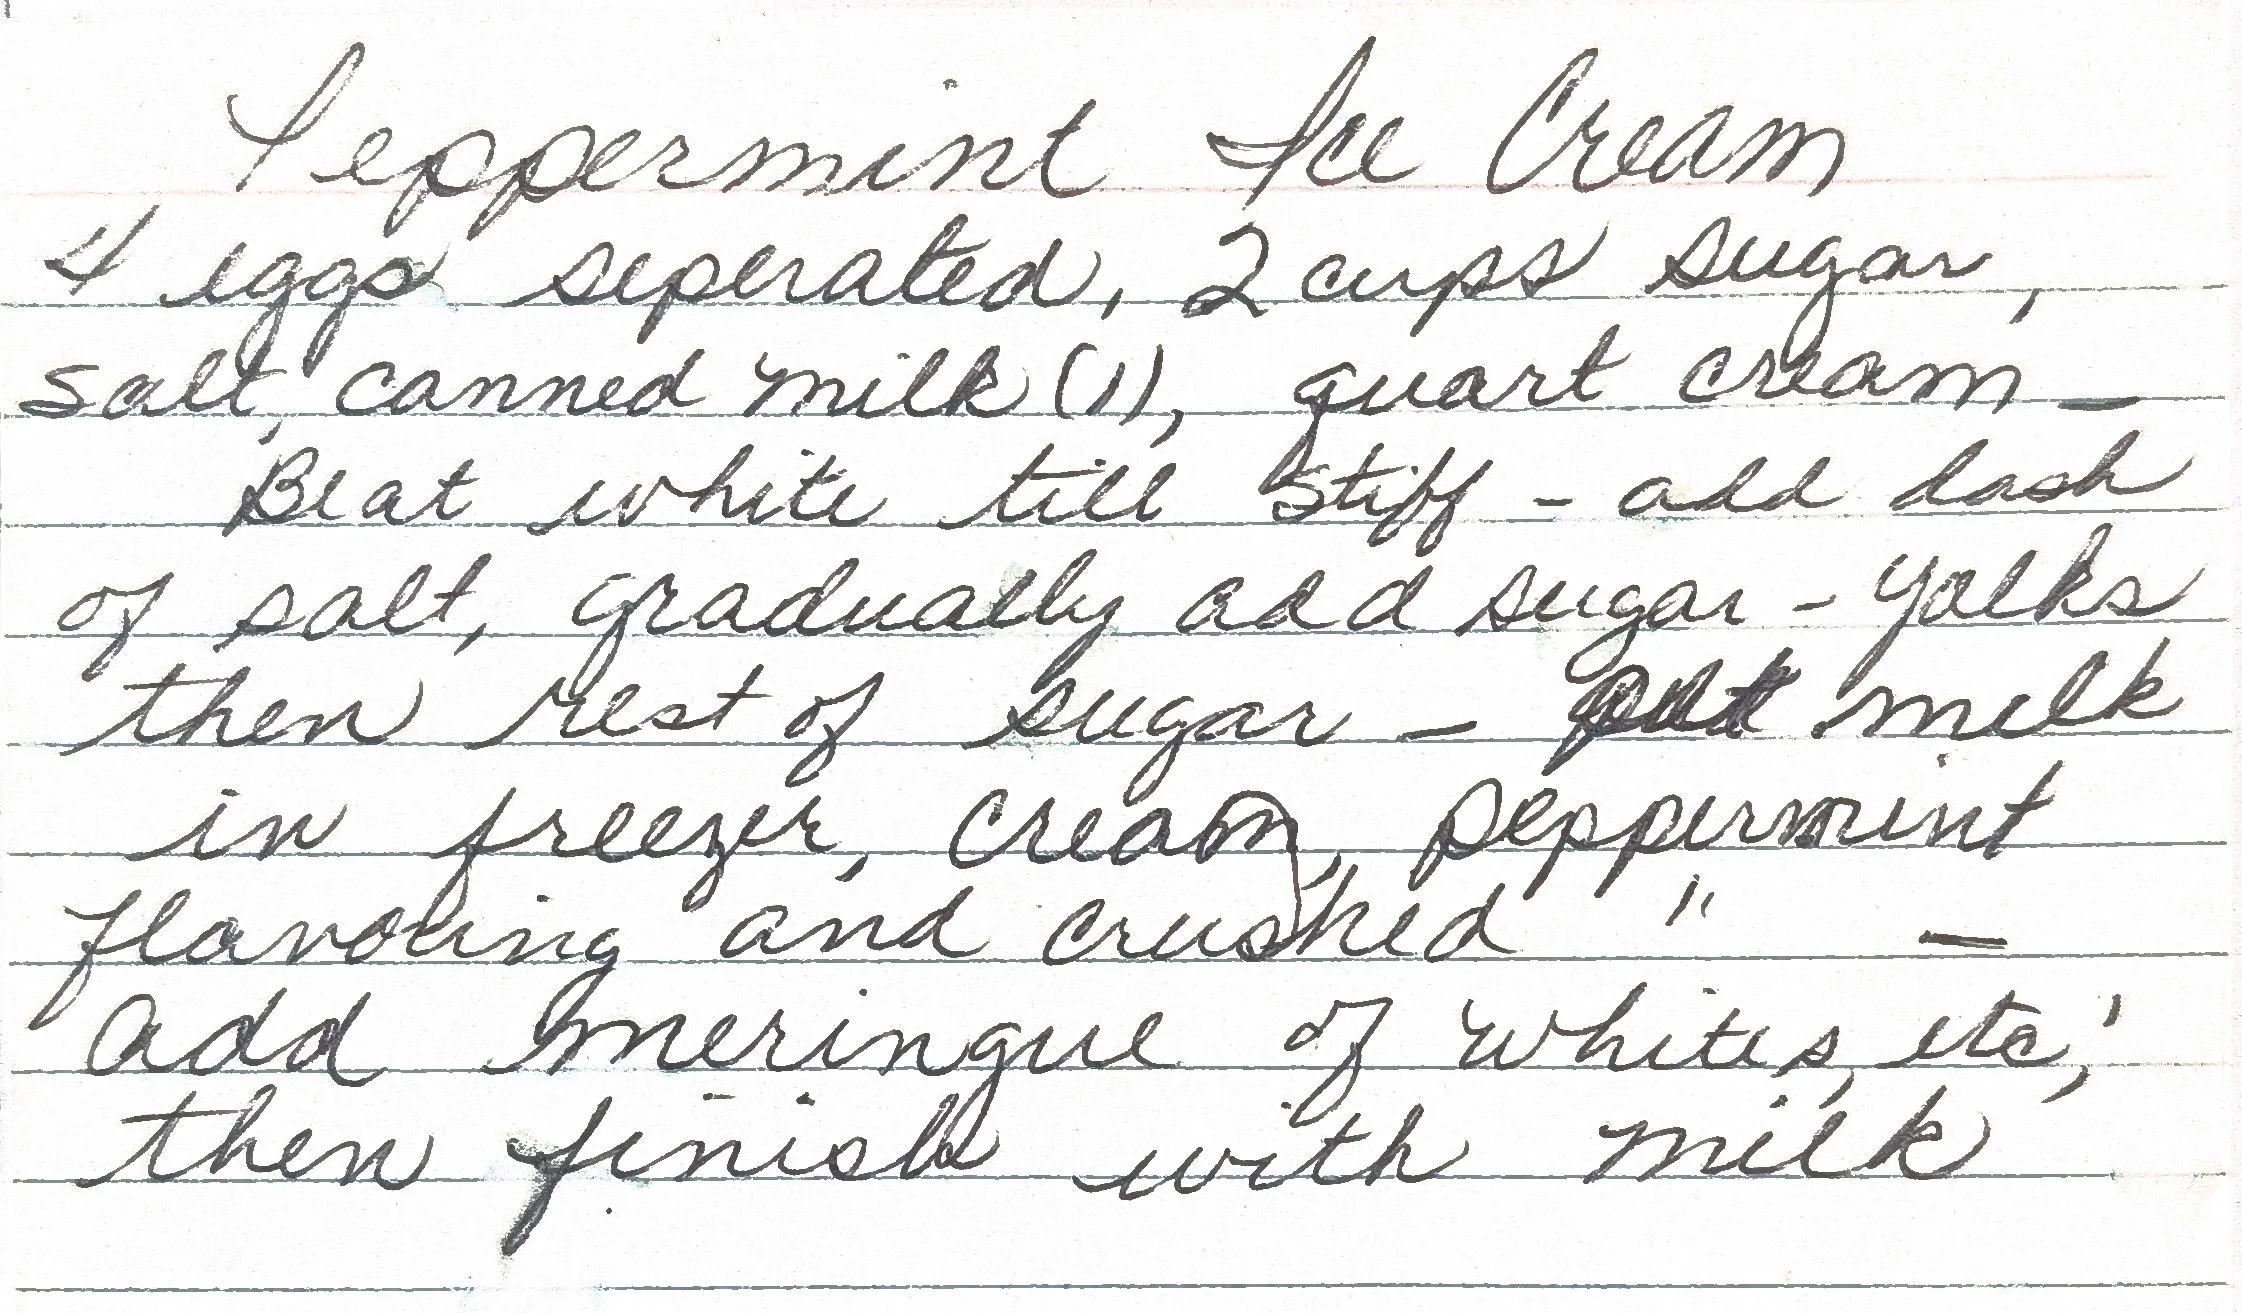 Peppermint Ice Cream
4 eggs seperated, 2 cups sugar,
salt, canned milk (1), quart cream –
Beat white till stiff – add dash
of salt, gradually add sugar – yolks
then rest of sugar – put milk
in freezer, cream, peppermint
flavoring and crushed " –
add meringue of whites, etc,
then finish with milk